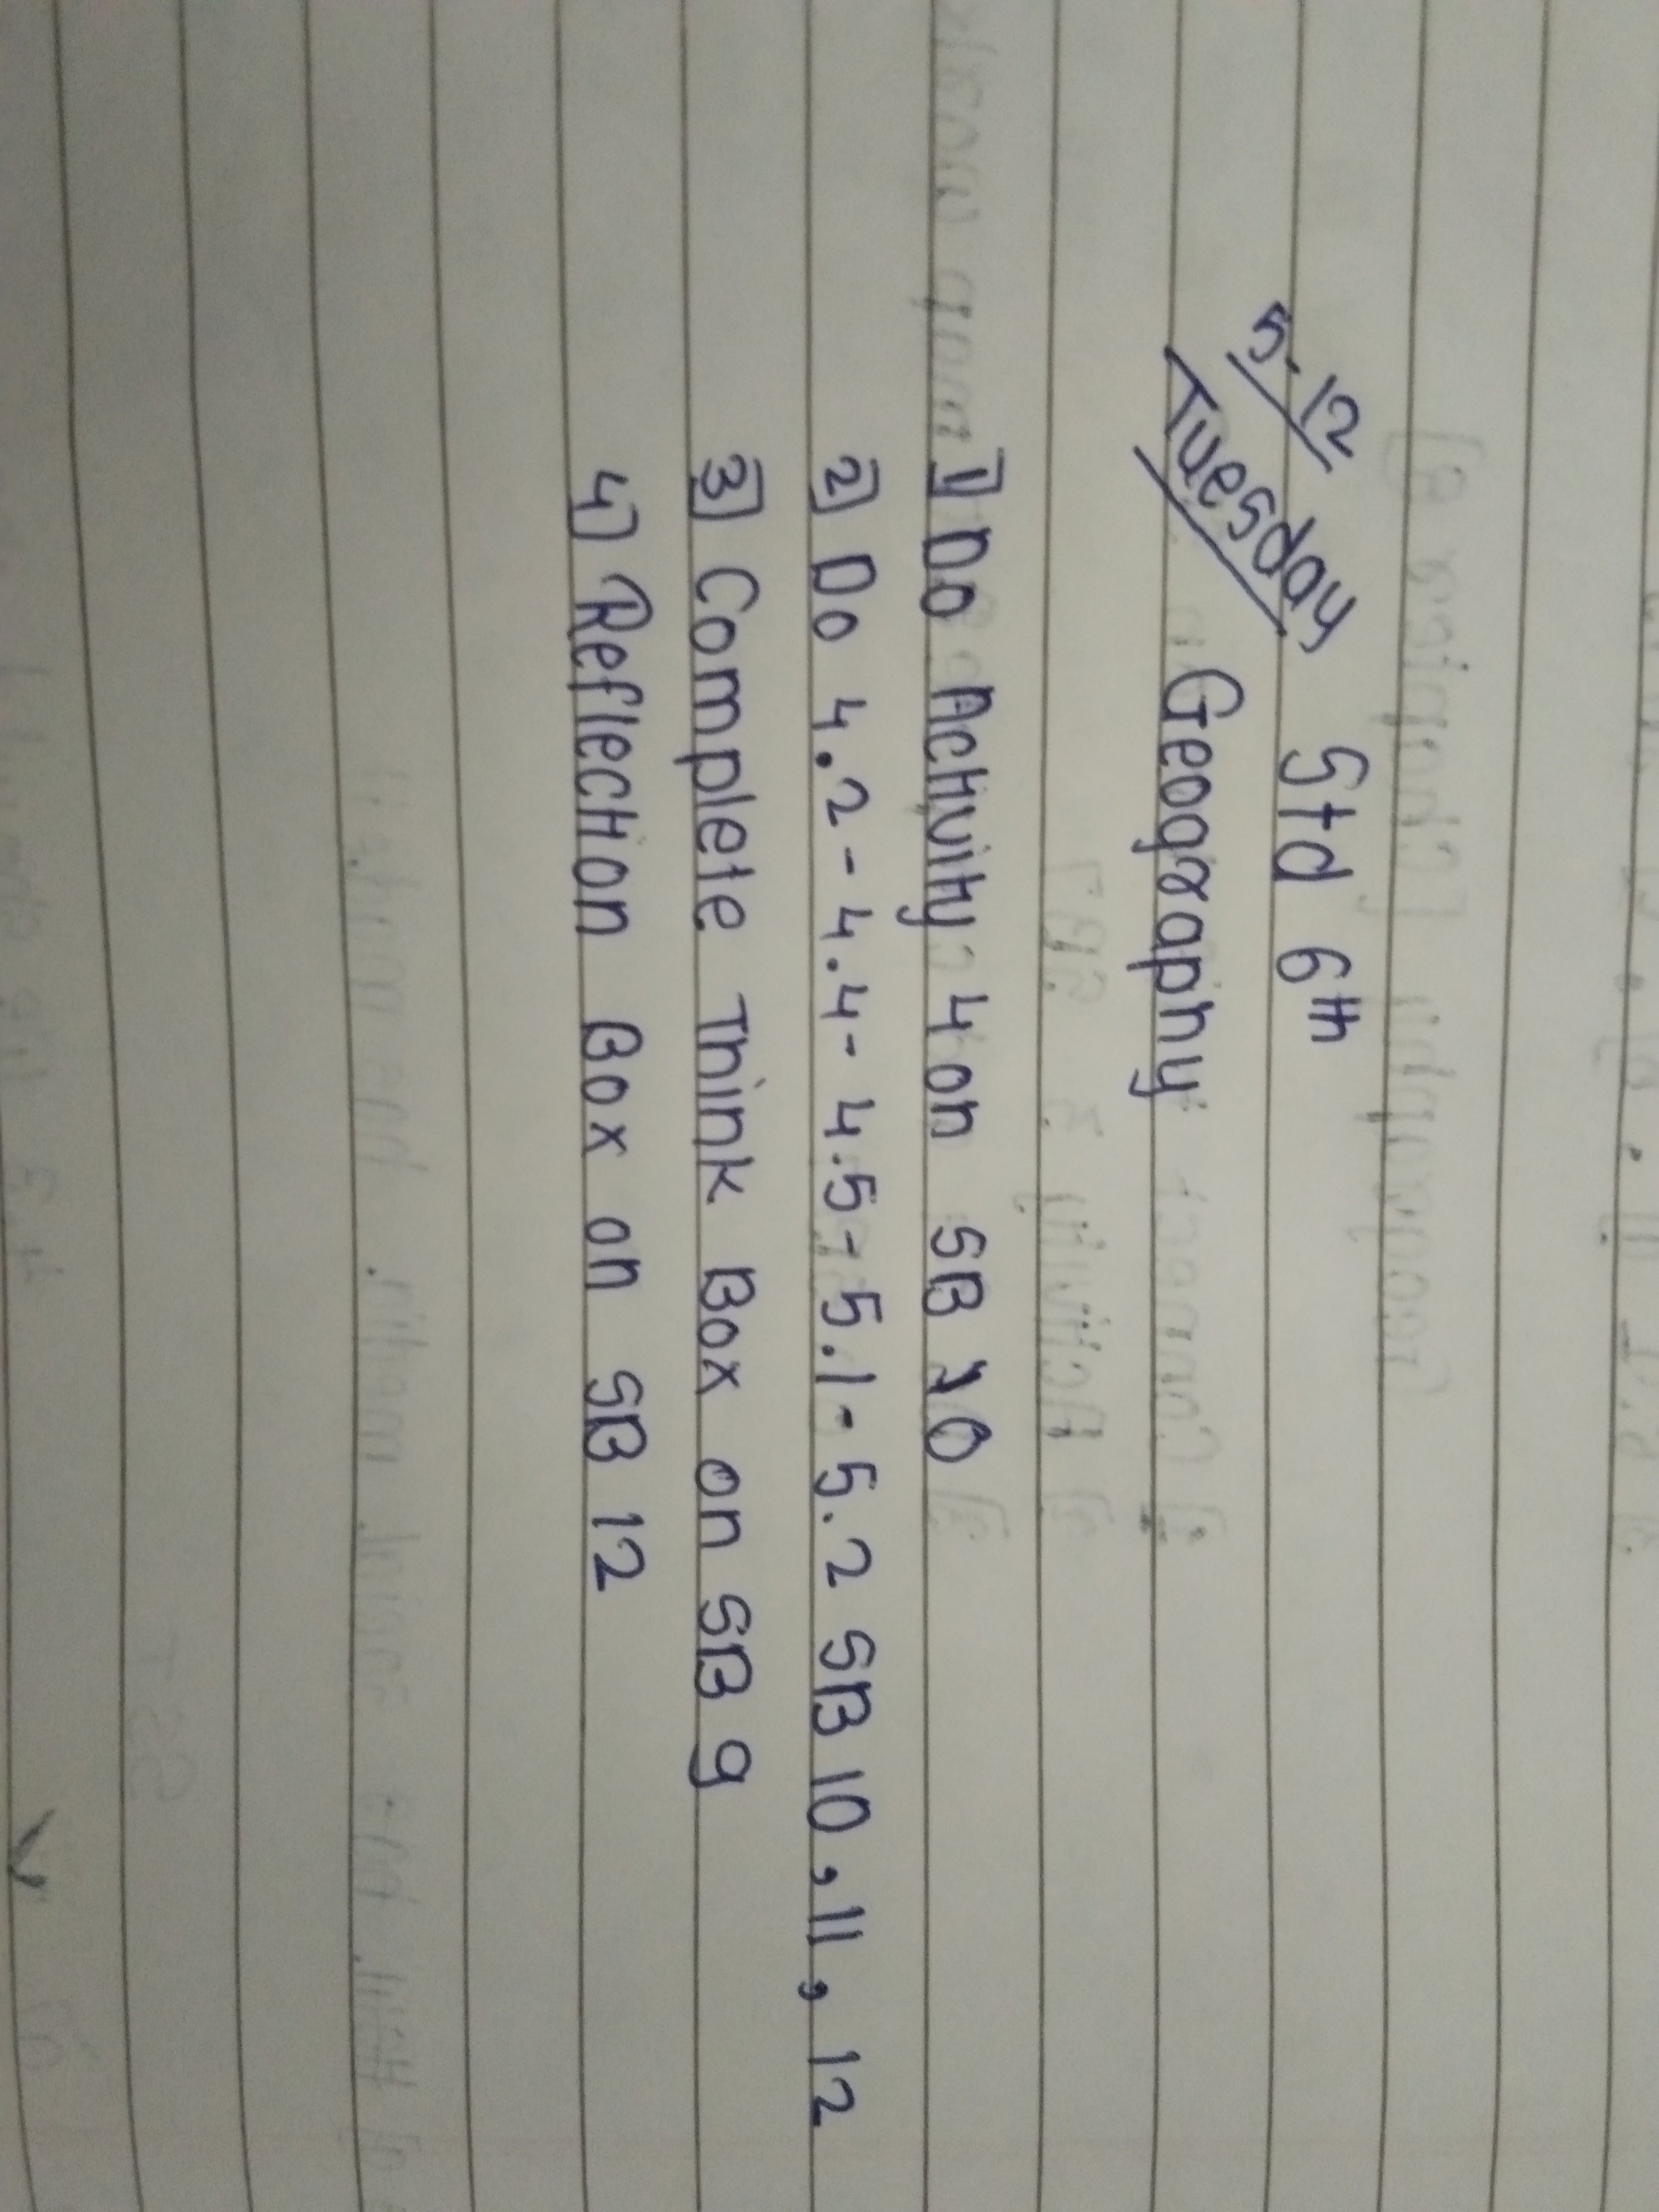 5-12
Tuesday
Std 6th
Geography
1] Do Activity 4 on SB 10
2] Do 4.2 - 4.4 - 4.5 - 5.1 - 5.2 SB 10, 11, 12
3] Complete Think Box on SB 9
4] Reflection Box on SB 12